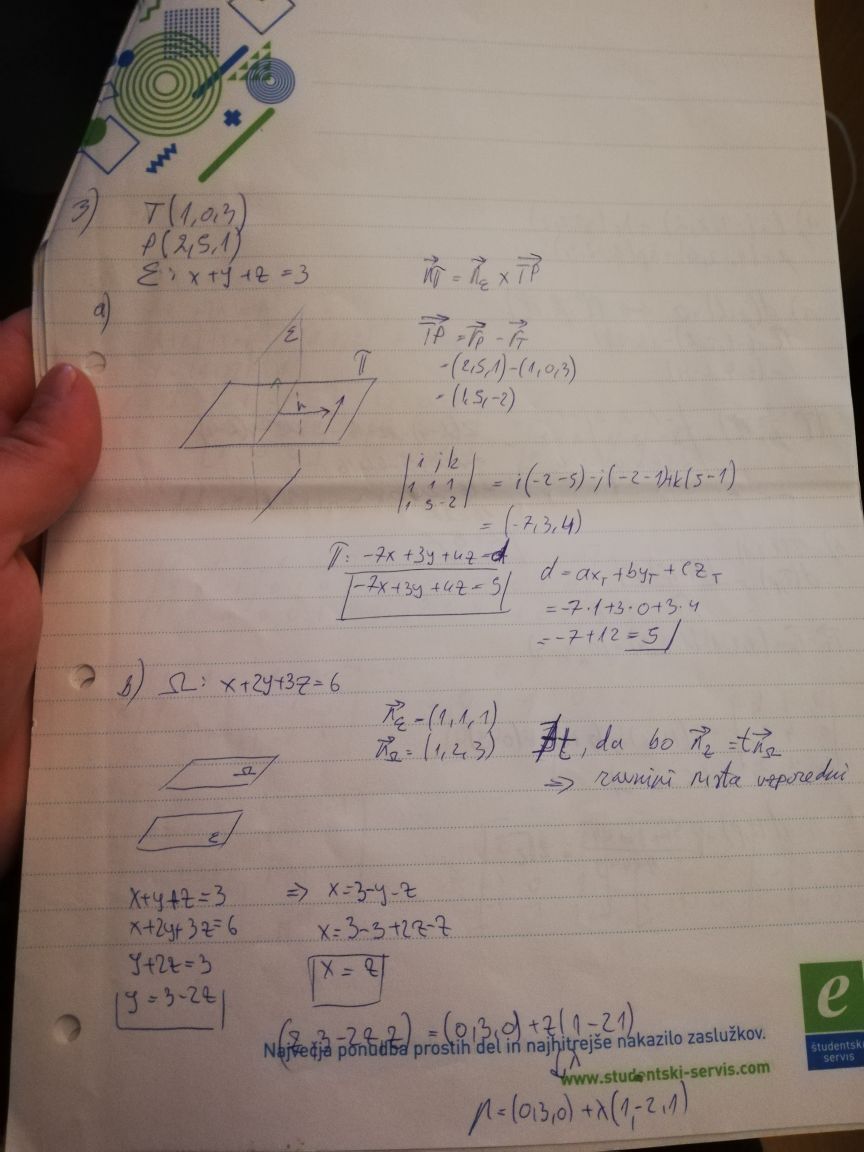 3) T(1,0,3)
P(2,5,1)
Σ: x+y+z=3
a)
Σ
π
n
→nπ = →nΣ × →TP
→TP = →rP - →rT
=(2,5,1)-(1,0,3)
=(1,5,-2)
|i j k|
|1 1 1|
|1 5 -2|
= i(-2-5)-j(-2-1)+k(5-1)
= (-7,3,4)
π: -7x+3y+4z=d
-7x+3y+4z=5
d=axT+byT+czT
=-7·1+3·0+3·4
=-7+12=5
b) Ω: x+2y+3z=6
→nΣ=(1,1,1)
→nΩ=(1,2,3)
∄t, da bo →nΣ=t→nΩ
⇒ ravnini nista vzporedni
Ω
Σ
x+y+z=3 ⇒ x=3-y-z
x+2y+3z=6 x=3-3+2z-z
y+2z=3 x=z
y=3-2z
(z,3-2z,z)=(0,3,0)+z(1-21)
λ
p=(0,3,0)+λ(1,-2,1)
Največja ponudba prostih del in najhitrejše nakazilo zaslužkov.
www.studentski-servis.com
e
študentski
servis